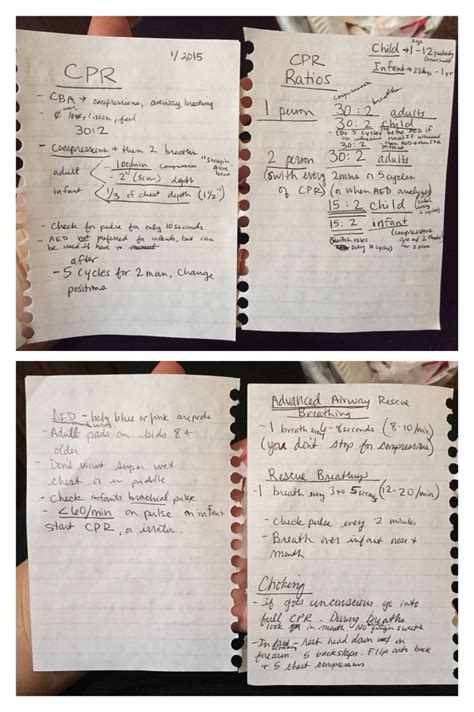 1/2015
CPR
- CBA → compressions, airway, breathing
- Ø look, listen, feel
30:2
- Compressions + then 2 breaths
adult
- 100/min compressions
- 2" (5cm) depth
infant
1/3 of chest depth (1½")
- Check for pulse for only 10 seconds
- AED not preferred for infants, but can
be used if have to
after
- 5 cycles for 2 man, change
positions
CPR
Ratios
Child → 1-12
age
Infant → 28days - 1yr
compressions
breaths
1 person 30:2 adults
30:2 child
30:2 infant
2 person 30:2 adults
(switch every 2mins or 5 cycles
of CPR) (or when AED analyzes)
15:2 child
15:2 infant
(switch roles
AED - baby blue or pink
- Adult pads on kids 8 +
older
- Don't want super wet
chest or in puddle
- Check infants brachial pulse
- <60/min on pulse on infant
start CPR, or
Advanced Airway Rescue
Breathing
- 1 breath every 6-8 seconds (8-10/min)
(you don't stop for compressions)
Rescue Breathing
- 1 breath every 3 to 5 secs (12-20/min)
- Check pulse every 2 minutes
- Breath over infant nose +
mouth
Choking
- if goes unconscious go into
full CPR. During breaths
look in mouth NO finger sweeps
- Infant - rest head down on
forearm. 5 backslaps. Flip onto back
+ 5 chest compressions